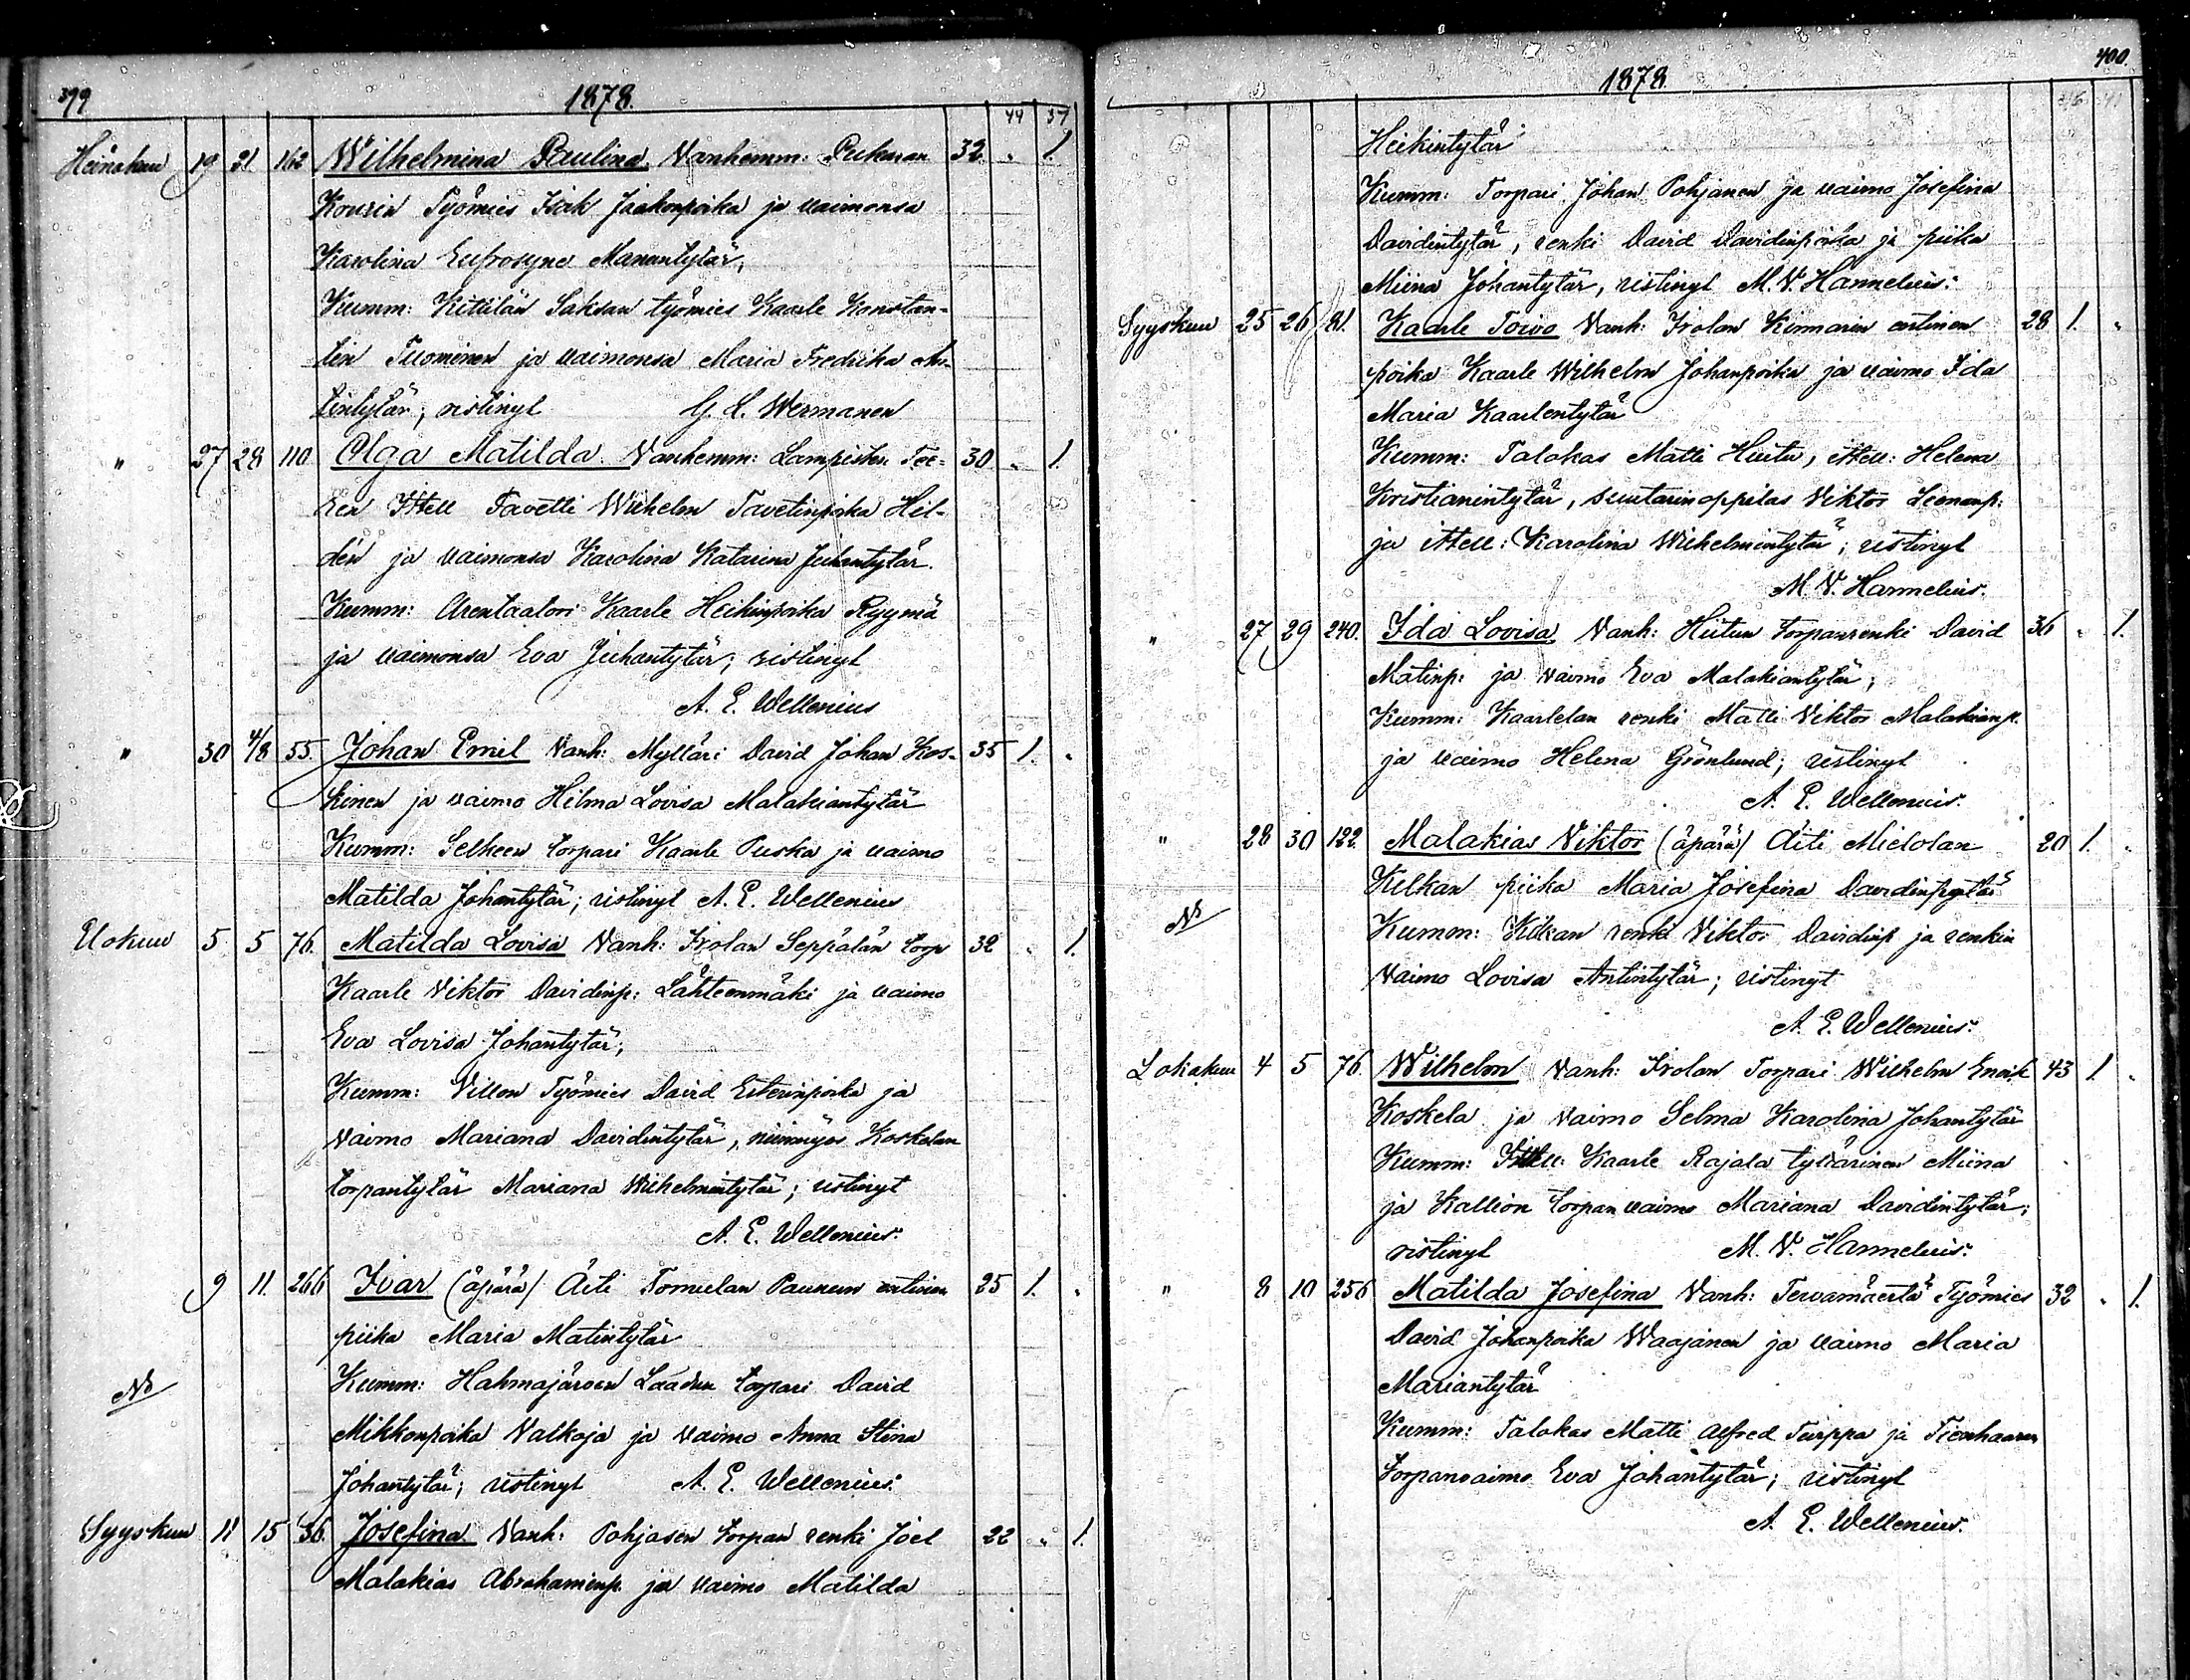 399
1878.
44 37
Heinäkuu 19 21. 162 Wilhelmina Paulina. Vanhemm: Pukaran 32. „ 1.
Kourin Työmies Isak Jaakonpoika ja vaimonsa
Karolina Eufrosyne Manantytär;
Kumm: Kittilän Saksan työmies Kaarle Konstan-
tin Tuominen ja vaimonsa Maria Fredrika An-
tintytär; ristinyt G. L. Wermanen
„ 27 28 110 Olga Matilda. Vanhemm: Lampisten Tee-
ren Itsell Tavetti Wilhelm Tavetinpoika Hil- 30 „ 1.
dén ja vaimonsa Karolina Katarina Juhantytär.
Kumm: Arentaatori Kaarle Heikinpoika Ryymä
ja vaimonsa Eva Juhantytär; ristinyt
A. E. Wellenius
„ 30 4/8 55. Johan Emil Vanh: Mylläri David Johan Kos- 35 1. „
kinen ja vaimo Hilma Lovisa Malakiantytär
Kumm: Selkeen torpari Kaarle Puska ja vaimo
Matilda Johantytär; ristinyt A. E. Wellenius
Elokuu 5 5 76. Matilda Lovisa Vanh: Irolan Seppälän torp 32 „ 1.
Kaarle Viktor Davidinp: Lähteenmäki ja vaimo
Eva Lovisa Johantytär;
Kumm: Villon Työmies David Esterinpoika ja
vaimo Mariana Davidintytär, niinmyös Koskelan
torpantytär Mariana Wilhelmintytär; ristinyt
A. E. Wellenius.
9 11. 266 Ivar (äpärä) Äiti Tomulan Paunun entinen 25 1. „
piika Maria Matintytär
No Kumm: Hahmajärven Laadun torpari David
Mikkonpoika Valkoja ja vaimo Anna Stina
Johantytär; ristinyt A. E. Wellenius.
Syyskuu 11 15 36. Josefina Vanh: Pohjosen torpan renki Joel 22 „ 1.
Malakias Abrahaminp. ja vaimo Matilda
400.
1878.
Heikintytär
Kumm: Torpari Johan Pohjanen ja vaimo Josefina
Davidintytär, renki David Davidinpoika ja piika
Miina Johantytär, ristinyt M. V. Hannelius.
Syyskuu 25 26 81. Kaarle Toivo Vanh: Irolan Kinnarin entinen 28 1. „
poika Kaarle Wilhelm Johanpoika ja vaimo Ida
Maria Kaarlentytär
Kumm: Talokas Matti Huitu, itsell: Helena
Kristianintytär, suutarinoppilas Viktor Leonanp:
ja itsell: Karolina Wilhelmintytär; ristinyt
M. V. Hannelius.
„ 27 29 240. Ida Lovisa Vanh: Hiitun torpanrenki David 36 „ 1.
Matinp: ja vaimo Eva Malakiantytär;
Kumm: Kaarlelan renki Matti Viktor Malakianp.
ja vaimo Helena Grönlund; ristinyt
A. E. Wellenius.
„ 28 30 122. Malakias Viktor (äpärä) Äiti Mielolan 20 1. „
Kilkan piika Maria Josefina
No Kumm: Kilkan renki Viktor Davidinp ja renkin
vaimo Lovisa Antintytär; ristinyt
A. E. Wellenius.
Lokakuu 4 5 76. Wilhelm Vanh: Irolan Torpari Wilhelm Enok 43 1. „
Koskela ja vaimo Selma Karolina Johantytär
Kumm: Itsell: Kaarle Rajala tyttärinen Miina
ja Kallion torpan vaimo Mariana Davidintytär;
ristinyt M. V. Hannelius.
„ 8 10 256 Matilda Josefina Vanh: Tervamäeltä Työmies 32 „ 1.
David Johanpoika Waajanen ja vaimo Maria
Mariantytär
Kumm: Talokas Matti Alfred Turppa ja Tienhaaran
torpanvaimo Eva Johantytär; ristinyt
A. E. Wellenius.